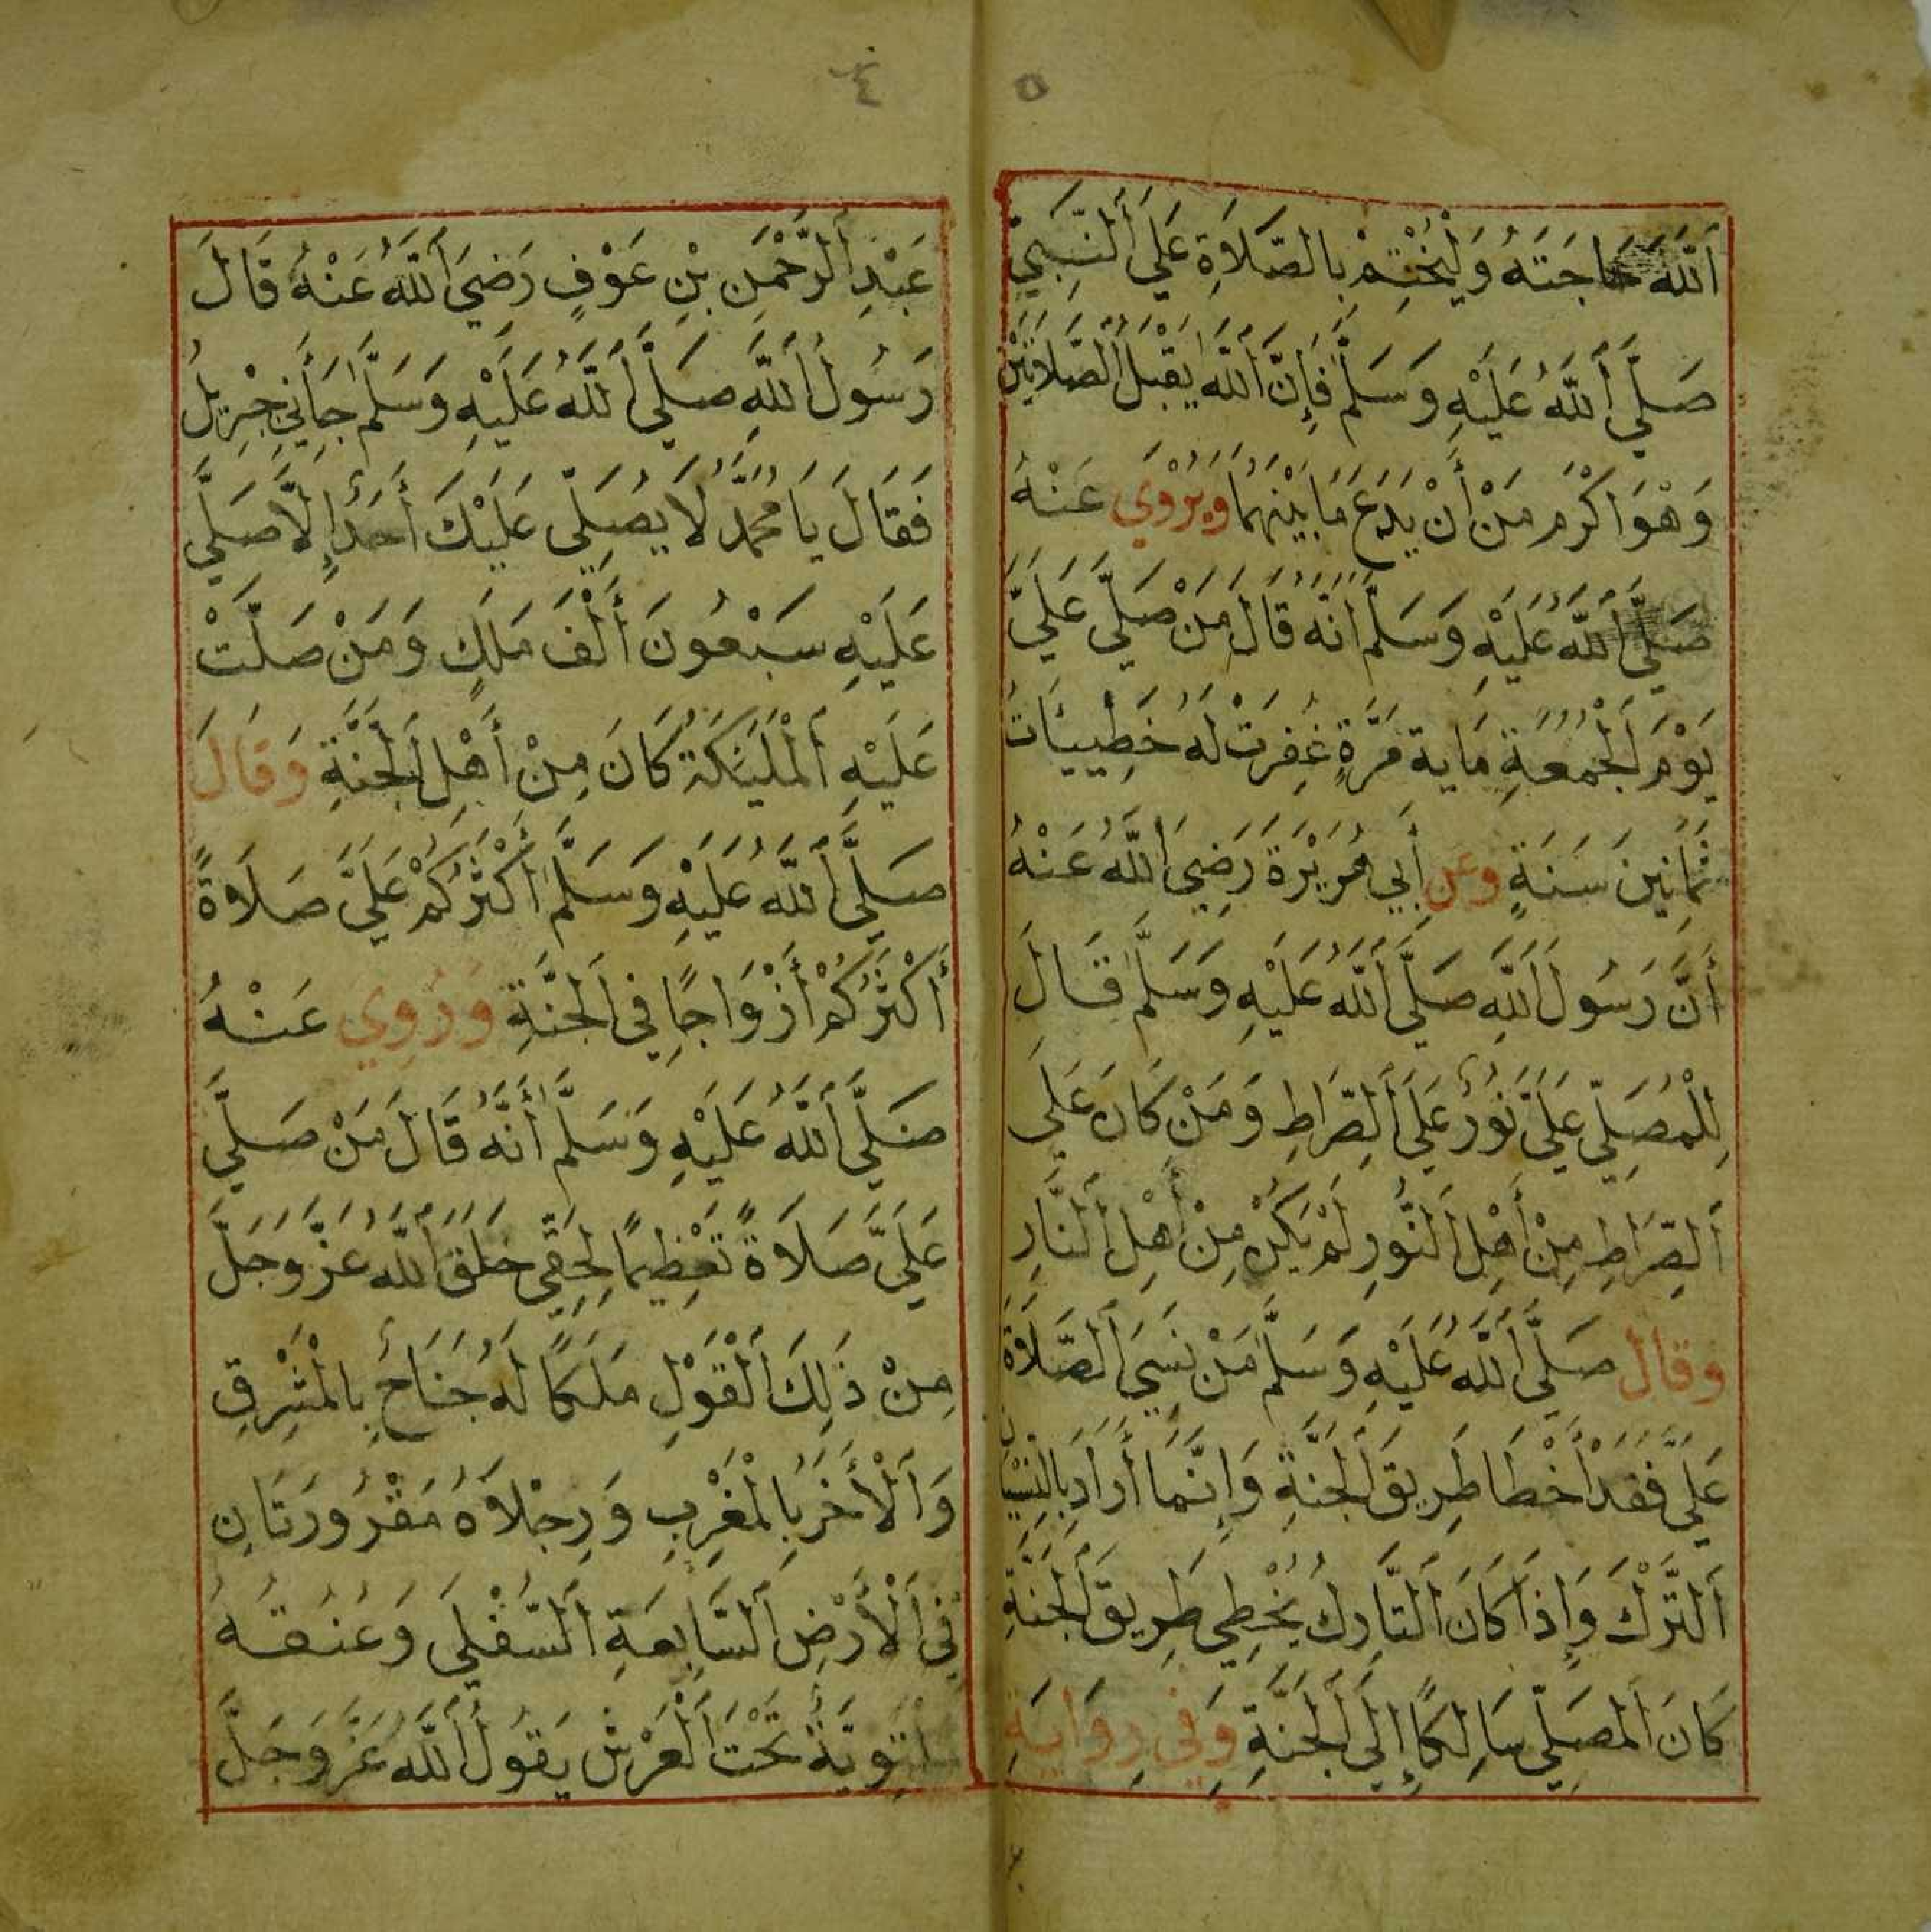 ٥
اَللَّهَ حَاجَتَهُ وَلْيَخْتِمْ بِالصَّلَاةِ عَلَى اَلنَّبِيِّ
صَلَّى اَللَّهُ عَلَيْهِ وَسَلَّمَ فَإِنَّ اَللَّهَ يَقْبَلُ اَلصَّلَاتَيْنِ
وَهُوَ اَكْرَمُ مَنْ أَنْ يَدَعَ مَا بَيْنَهُمَا وَيُرْوَى عَنْهُ
صَلَّى اَللَّهُ عَلَيْهِ وَسَلَّمَ اَنَّهُ قَالَ مَنْ صَلَّى عَلَيَّ
يَوْمَ اَلْجُمُعَةِ مَاية مَرَّةٍ غُفِرَتْ لَهُ خَطِييَاتُ
ثَمَانِينَ سَنَةٍ وعن أَبِي هُرَيْرَةَ رَضِيَ اَللَّهُ عَنْهُ
أَنَّ رَسُولَ اَللَّهِ صَلَّى اَللَّهُ عَلَيْهِ وَسَلَّمَ قَالَ
لِلْمُصَلِّي عَلَيَّ نُورٌ عَلَى اَلصِّرَاطِ وَمَنْ كَانَ عَلَى
اَلصِّرَاطِ مِنْ أَهْلِ اَلنُّورِ لَمْ يَكُنْ مِنْ أَهْلِ اَلنَّارِ
وقال صَلَّى اَللَّهُ عَلَيْهِ وَسَلَّمَ مَنْ نَسِيَ اَلصَّلَاةَ
عَلَيَّ فَقَدْ أَخْطَا طَرِيقَ اَلْجَنَّةِ وَإِنَّمَا أَرَادَ بِالنِّسْيَانِ
اَلتَّرْكَ وَإِذَا كَانَ اَلتَّارِكُ يُخْطِي طَرِيقَ اَلْجَنَّةِ
كَانَ اَلْمُصَلِّي سَالِكًا إِلَى اَلْجَنَّةِ وَفِي رِوَايَةِ
٤
عَبْدِ اَلرَّحْمَنِ بْنِ عَوْفٍ رَضِيَ اَللَّهُ عَنْهُ قَالَ
رَسُولُ اَللَّهِ صَلَّى اَللَّهُ عَلَيْهِ وَسَلَّمَ جَاَنِي جِبْرِيلُ
فَقَالَ يَا مُحَمَّدُ لَا يُصَلِّي عَلَيْكَ أَحَدٌ إِلَّا صَلَّى
عَلَيْهِ سَبْعُونَ أَلْفَ مَلَكٍ وَمَنْ صَلَّتْ
عَلَيْهِ اَلْمَلَيِكَةُ كَانَ مِنْ أَهْلِ اَلْجَنَّةِ وَقَالَ
صَلَّى اَللَّهُ عَلَيْهِ وَسَلَّمَ أَكْثَرُكُمْ عَلَيَّ صَلَاةً
أَكْثَرُكُمْ أَزْوَاجًا فِي اَلْجَنَّةِ وَرُوِيَ عَنْهُ
صَلَّى اَللَّهُ عَلَيْهِ وَسَلَّمَ أَنَّهُ قَالَ مَنْ صَلَّى
عَلَيَّ صَلَاةً تَعْظِيمًا لِحَقِّي خَلَقَ اَللَّهُ عَزَّ وَجَلَّ
مِنْ ذَلِكَ اَلْقَوْلِ مَلَكًا لَهُ جَنَاحٌ بِالْمَشْرِقِ
وَاَلْأَخَرُ بِالْمَغْرِبِ وَرِجْلَاهُ مَقْرُورَتَانِ
فِي اَلْأَرْضِ اَلسَّابِعَةِ اَلسُّفْلَى وَعُنُقُهُ
مُلْتَوِيَةٌ تَحْتَ اَلْعَرْشِ يَقُولُ اَللَّهُ عَزَّ وَجَلَّ